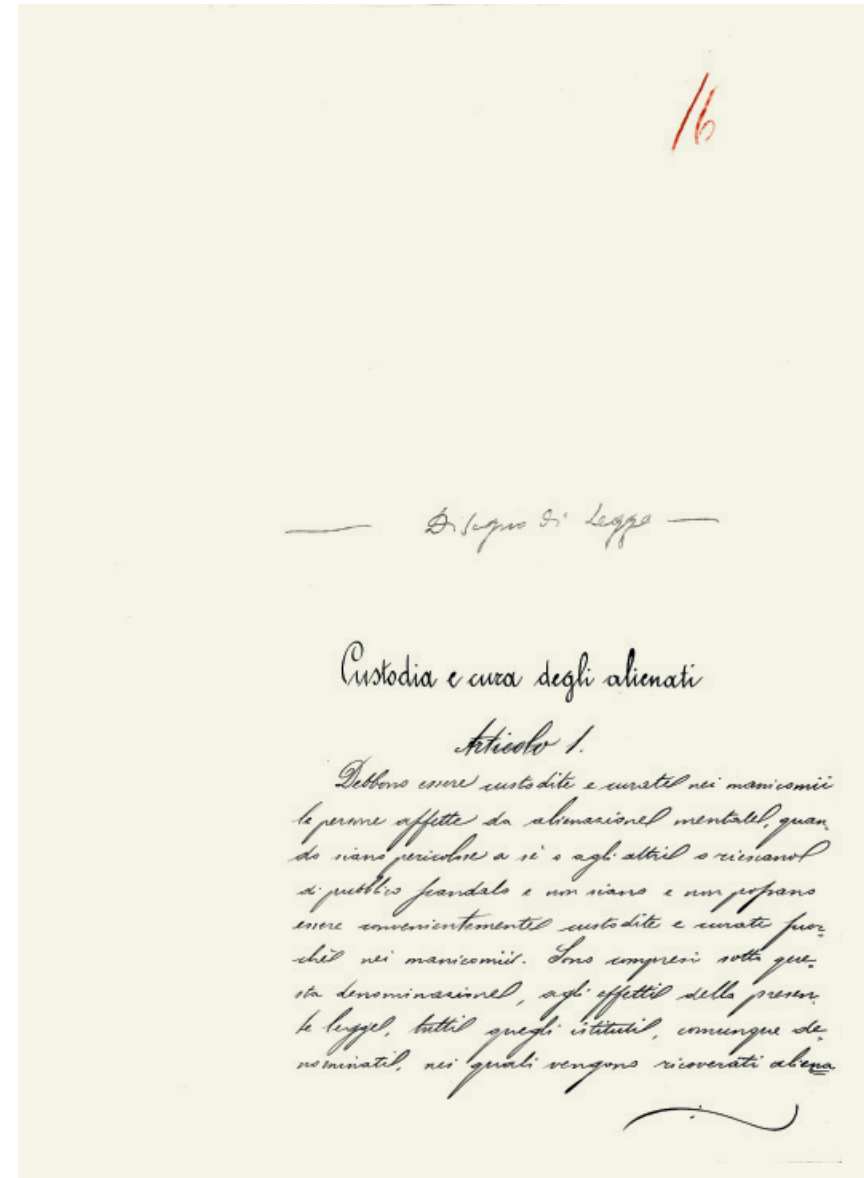 16
— Disegno di Legge —
Custodia e cura degli alienati
Articolo 1.
Debbono essere custodite e curate nei manicomii
le persone affette da alienazione mentale, quan-
do siano pericolose a sè o agli altri o riescano
di pubblico scandalo e non siano e non possano
essere convenientemente custodite e curate fuor-
chè nei manicomii. Sono compresi sotto que-
sta denominazione, agli effetti della presen-
te legge, tutti quegli istituti, comunque de-
nominati, nei quali vengono ricoverati aliena